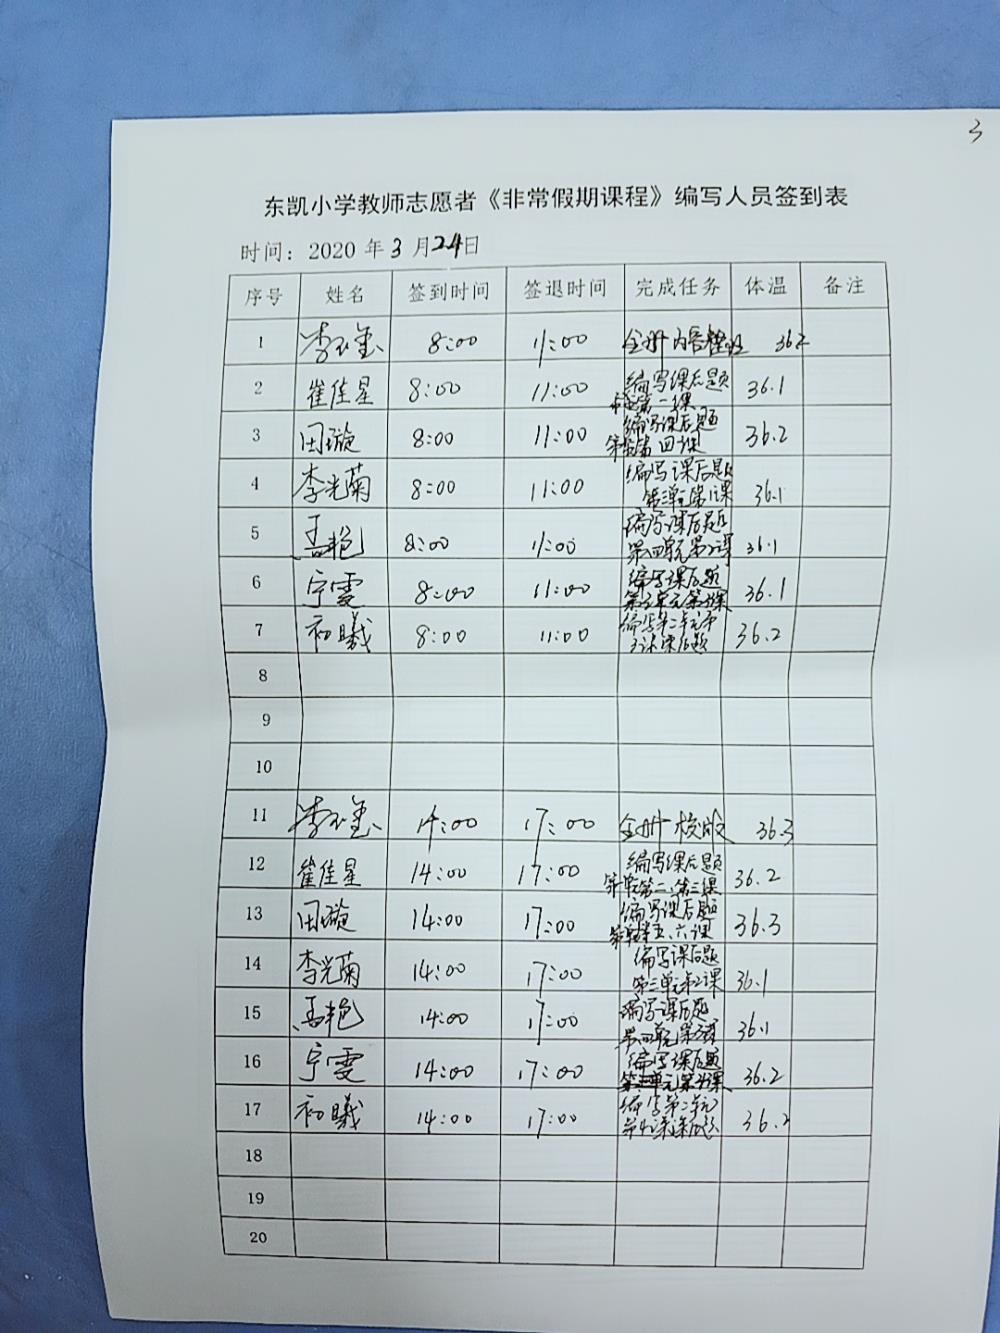 3
东凯小学教师志愿者《非常假期课程》编写人员签到表
时间：2020 年 3 月 24 日
序号 姓名 签到时间 签退时间 完成任务 体温 备注
1 李 8:00 11:00 全册内容整 36.2
2 崔佳星 8:00 11:00 编写课后题 第一课 36.1
3 田璇 8:00 11:00 编写课后题 第四课 36.2
4 李光菊 8:00 11:00 编写课后题 第三单元第1课 36.1
5 孟艳 8:00 11:00 编写课后题 第四单元第2课 36.1
6 宁雯 8:00 11:00 编写课后题 36.1
7 初曦 8:00 11:00 编写第二单元第3课课后题 36.2
8
9
10
11 李 14:00 17:00 全册校 36.3
12 崔佳星 14:00 17:00 编写课后题 第二、第三课 36.2
13 田璇 14:00 17:00 编写课后题 五、六课 36.3
14 李光菊 14:00 17:00 编写课后题 第三单元第2课 36.1
15 孟艳 14:00 17:00 编写课后题 第四单元第3课 36.1
16 宁雯 14:00 17:00 编写课后题 36.2
17 初曦 14:00 17:00 编写第二单元 第4课课后题 36.2
18
19
20